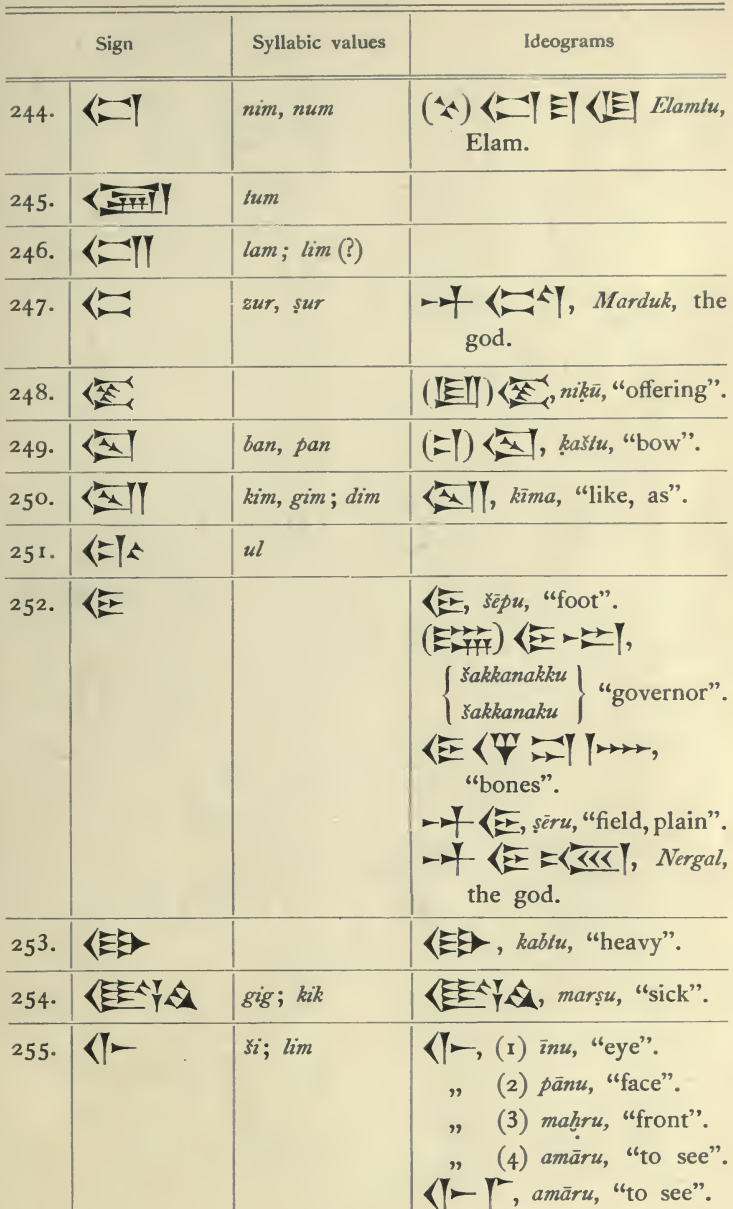 Sign Syllabic values Ideograms
244. 𒉏 nim, num (𒆳) 𒉏 𒈠 𒆠 Elamtu,
Elam.
245. tum
246. 𒇴 lam; lim (?)
247. 𒀫 zur, ṣur 𒀭 𒀫𒌓, Marduk, the
god.
248. 𒀬 (𒇻) 𒀬, niḳū, “offering”.
249. 𒉼 ban, pan (𒄑) 𒉼, ḳaštu, “bow”.
250. 𒁶 kim, gim; dim 𒁶, kīma, “like, as”.
251. 𒌌 ul
252. 𒄊 𒄊, šēpu, “foot”.
(𒇽) 𒄊 𒀴,
šakkanakku
šakkanaku “governor”.
𒄊 𒉻 𒁺 𒈨𒌍,
“bones”.
𒀭 𒄊, ṣēru, “field, plain”.
𒀭 𒄊 𒀕, Nergal,
the god.
253. 𒂂 𒂂, kabtu, “heavy”.
254. 𒍼 gig; kik 𒍼, marṣu, “sick”.
255. 𒅆 ši; lim 𒅆, (1) īnu, “eye”.
„ (2) pānu, “face”.
„ (3) maḫru, “front”.
„ (4) amāru, “to see”.
𒅆 𒇲, amāru, “to see”.